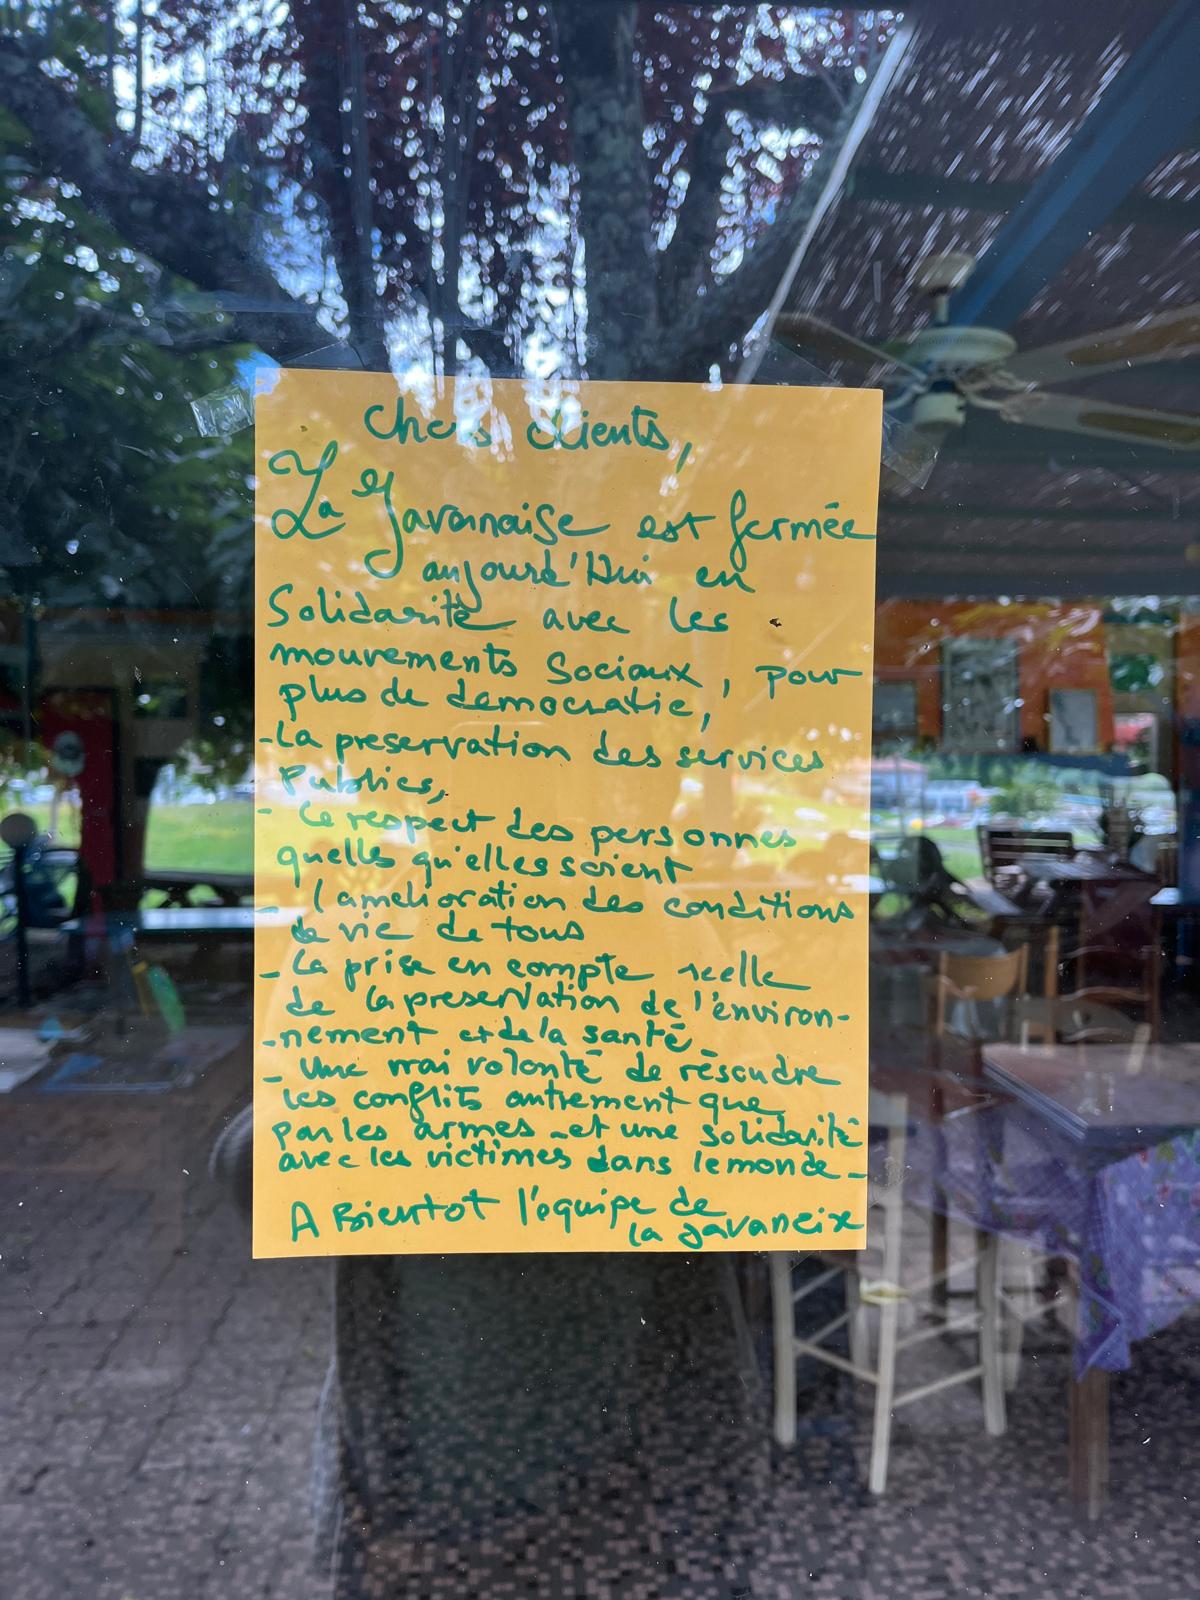 Chers clients,
La Javanaise est fermée
aujourd'Hui en
Solidarité avec les
mouvements Sociaux, pour
plus de democratie,
-la preservation des services
Publics,
- Le respect des personnes
quelles qu'elles soient
- l'amelioration des conditions
de vie de tous
- La prise en compte reelle
de la preservation de l'environ-
-nement et de la santé
- Une vrai volonté de résoudre
les conflits autrement que
par les armes - et une solidarité
avec les victimes dans le monde -
A Bientot l'équipe de
la